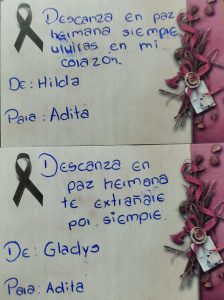 Descanza en paz
hermana siempre
viviras en mi
corazón.
De: Hilda
Para: Adita
Descanza en
paz hermana
te extrañare
por siempre.
De: Gladys
Para: Adita